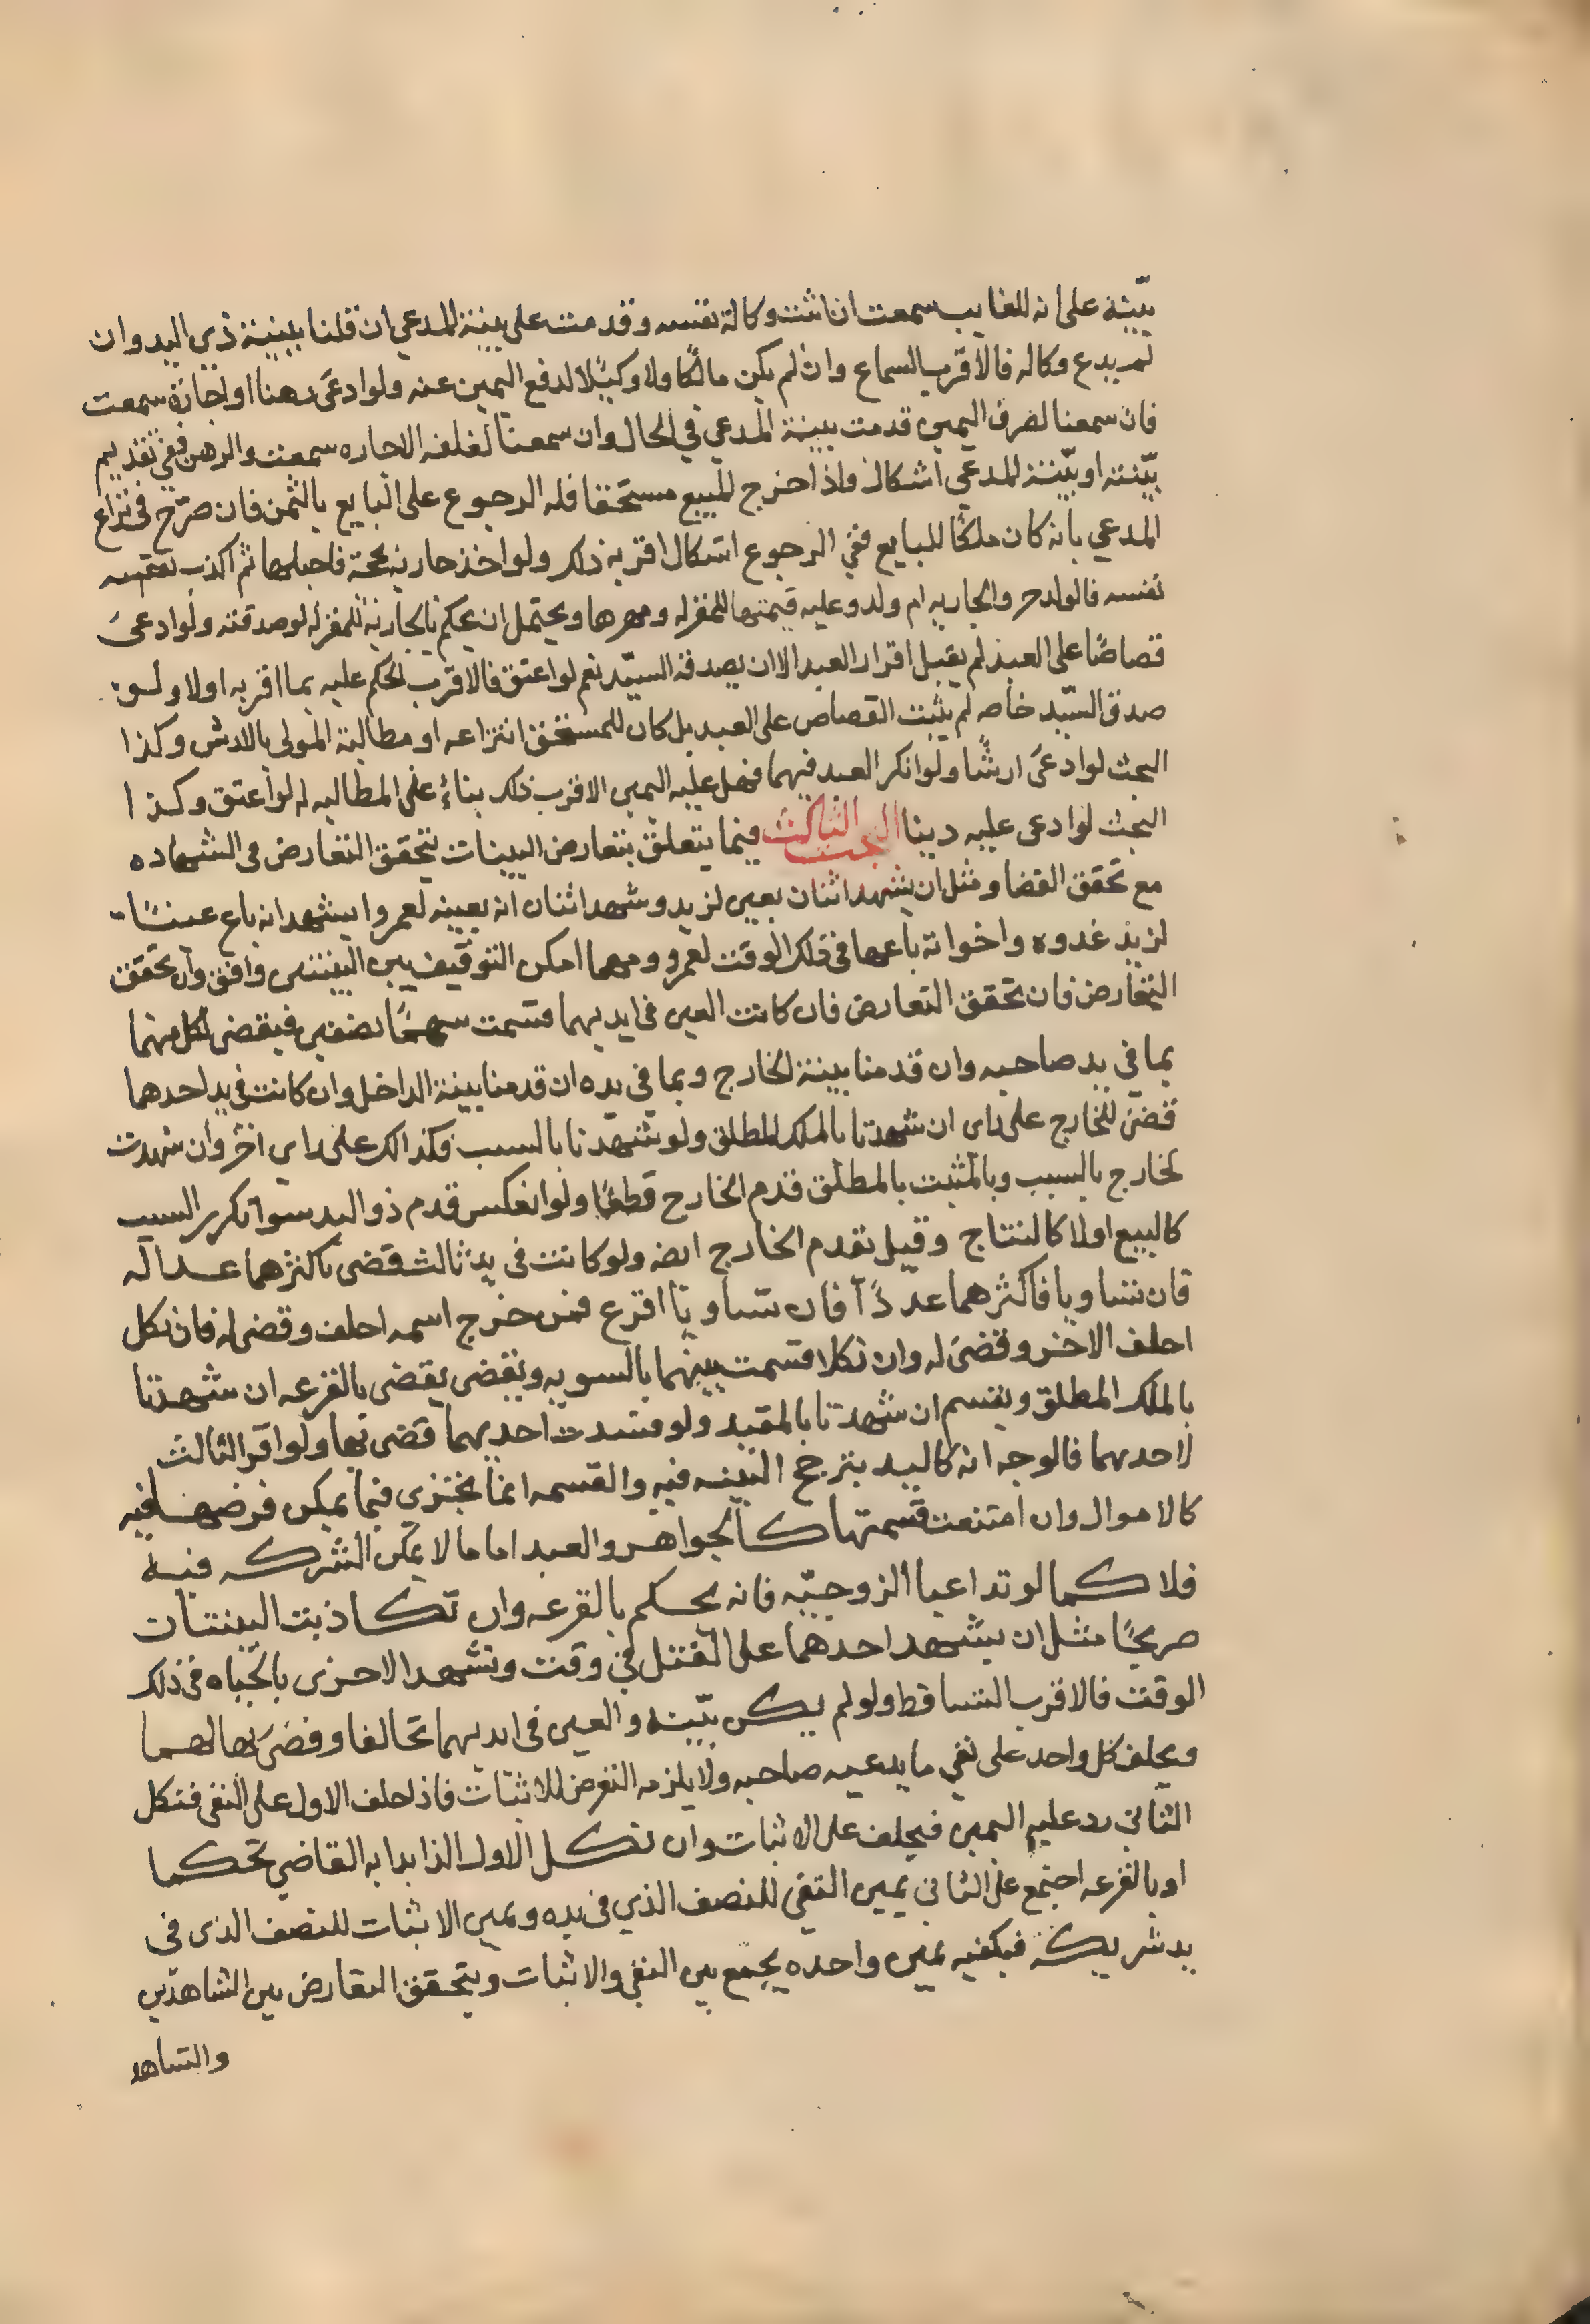 بيّنة على انه للغايب سمعت ان اثبت وكالة نفسه وقدمت على بينة المدعي ان قلنا ببينة ذي اليد وان
لم يدع وكاله فالاقرب السماع وان لم يكن مالكا ولا وكيلا لدفع اليمين عنه ولو ادعى رهنا او اجازة سمعت
فان سمعنا لصرف اليمين قدمت بينة المدعي في الحال وان سمعنا لعلقه الاجاره سمعت والرهن ففي تقديم
بيّنته او بيّنة المدعي اشكال واذا خرج المبيع مستحقا فله الرجوع على البايع بالثمن فان صرّح في نزاع
المدعي بانه كان ملكا للبايع ففي الرجوع اشكال اقربه ذلك ولو اخذ جاريه بحجة فاحبلها ثم اكذب نفسه
نفسه فالولد حر والجاريه ام ولد وعليه قيمتها للمقر له ومهرها ويحتمل ان يحكم بالجارية للمقر له لو صدقته ولو ادعى
قصاصا على العبد لم يقبل اقرار العبد الا ان يصدقه السيّد نعم لو اعتق فالاقرب الحكم عليه بما اقر به اولا ولو
صدق السيّد خاصه لم يثبت القصاص على العبد بل كان للمستحق انتزاعه او مطالبة المولى بالارش وكذا
البحث لو ادعى ارشًا ولو انكر العبد فيهما فهل عليه اليمين الاقرب ذلك بناءً على المطالبه له لو اعتق وكذا
البحث لو ادعى عليه دينا البحث الثالث فيما يتعلق بتعارض البينات يتحقق التعارض في الشهاده
مع تحقق القضا ومثل ان يشهد اثنان بعين لزيد وشهد اثنان انه بعينه لعمرو او يشهد انه باع عينًا
لزيد غدوه واخر انه باعها في ذلك الوقت لعمرو ومهما امكن التوفيق بين البينتين وافق وان تحقق
التعارض فان تحقق التعارض فان كانت العين في ايديهما قسمت سهما نصفين فيقضى لكل منهما
بما في يد صاحبه وان قدمنا بينة الخارج وبما في يده ان قدمنا بينة الداخل وان كانت في يد احدهما
قضى للخارج على راى ان شهدتا بالملك المطلق ولو شهدتا بالسبب فكذالك على راى اخر وان شهدت
لخارج بالسبب وبالمثبت بالمطلق قدم الخارج قطعًا ولو انعكس قدم ذو اليد سوا تكرر السبب
كالبيع اولا كالنتاج وقيل يقدم الخارج ايضه ولو كانت في يد ثالث قضى باكثرهما عدالة
فان تساويا فاكثرهما عددًا فان تساويا اقرع فمن خرج اسمه احلف وقضى له فان نكل
احلف الاخر وقضى له وان نكلا قسمت بينهما بالسويه ويقضى يقضى بالقرعه ان شهدتا
بالملك المطلق ويقسم ان شهدتا بالمقيد ولو قيدت احديهما قضى بها ولو اقر الثالث
لاحدهما فالوجه انه كاليد يترجح البينه فيه والقسمه انما يجتزى فيما يمكن فرضها فيه
كالاموال وان امتنعت قسمتها كالجواهر والعبد اما ما لا يمكن الشركه فيه
فلا كما لو تداعيا الزوجيّه فانه يحكم بالقرعه وان تكاذبت البينتان
صريحًا مثل ان يشهد احدهما على القتل في وقت وتشهد الاخرى بالحياه في ذلك
الوقت فالاقرب التساقط ولو لم يكن بيّنه والعين في ايديهما تحالفا وقضى بها لهما
ويحلف كل واحد على نفي ما يدعيه صاحبه ولا يلزمه التعرض للاثبات فاذا حلف الاول على النفي فنكل
الثاني رد عليه اليمين فيحلف على الاثبات وان نكل الاول الذا بدا به القاضي تحكما
او بالقرعه اجتمع على الثاني يمين النفي للنصف الذي في يده ويمين الاثبات للنصف الذى في
يد شريكه فيكفيه يمين واحده يجمع بين النفي والاثبات ويتحقق التعارض بين الشاهدين
والشاهد